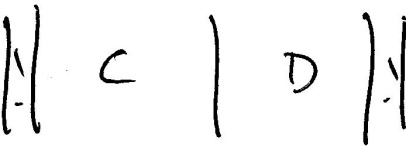 || C | D ||